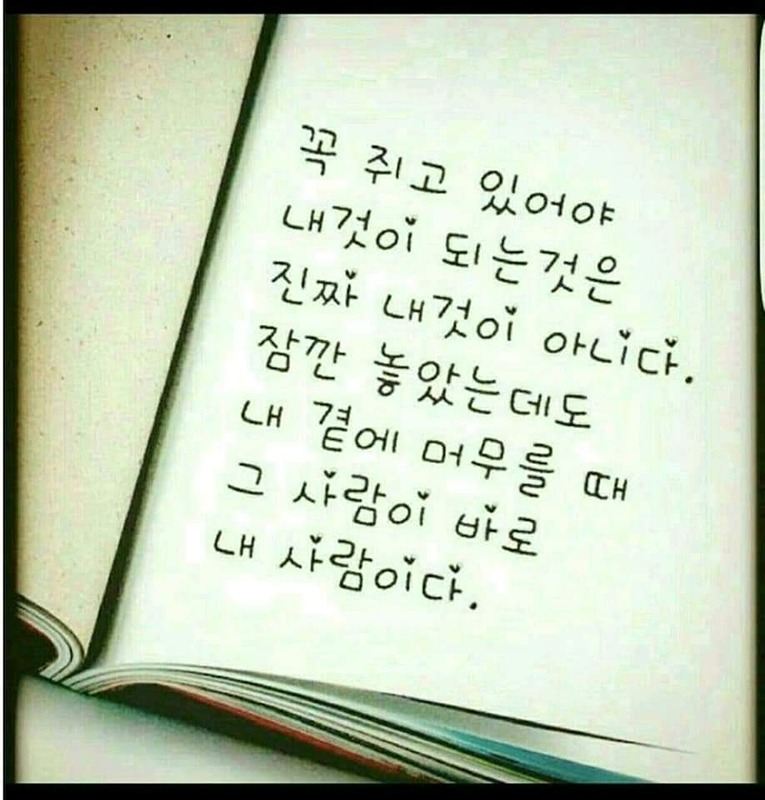 꼭 쥐고 있어야
내것이 되는것은
진짜 내것이 아니다.
잠깐 놓았는데도
내 곁에 머무를 때
그 사람이 바로
내 사람이다.